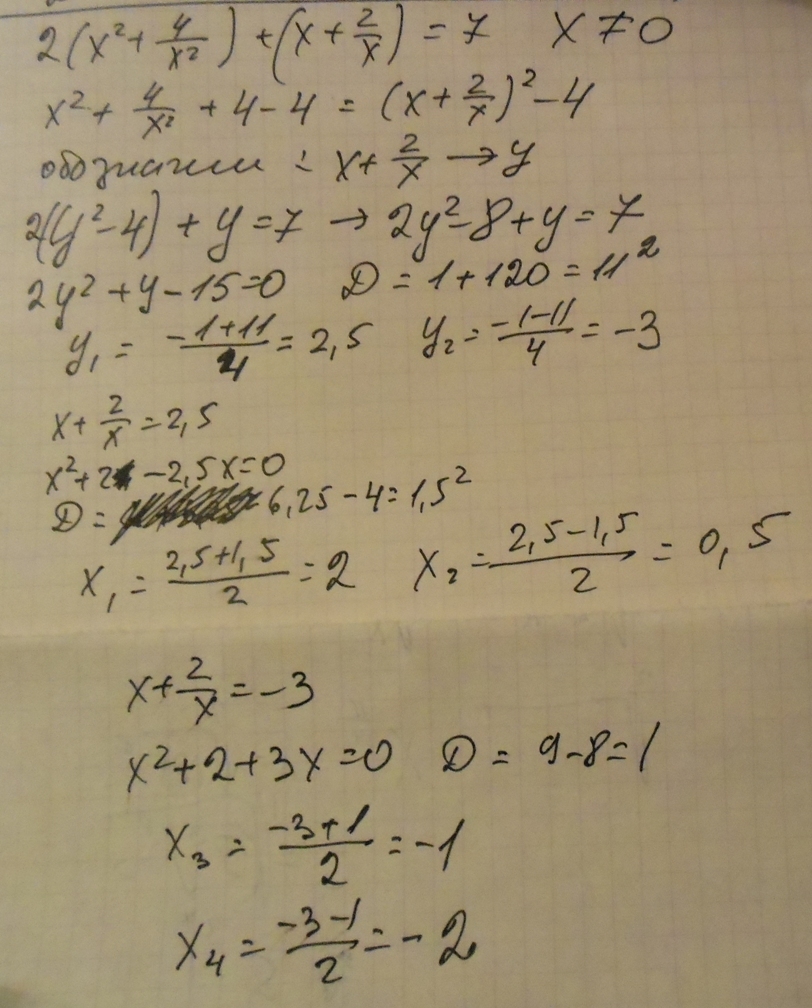 2(x² + 4/x²) + (x + 2/x) = 7 x ≠ 0
x² + 4/x² + 4 - 4 = (x + 2/x)² - 4
обозначим : x + 2/x → y
2(y² - 4) + y = 7 → 2y² - 8 + y = 7
2y² + y - 15 = 0 D = 1 + 120 = 11²
y₁ = (-1+11)/4 = 2,5 y₂ = (-1-11)/4 = -3
x + 2/x = 2,5
x² + 2 - 2,5x = 0
D = 6,25 - 4 = 1,5²
x₁ = (2,5+1,5)/2 = 2 x₂ = (2,5-1,5)/2 = 0,5
x + 2/x = -3
x² + 2 + 3x = 0 D = 9 - 8 = 1
x₃ = (-3+1)/2 = -1
x₄ = (-3-1)/2 = -2